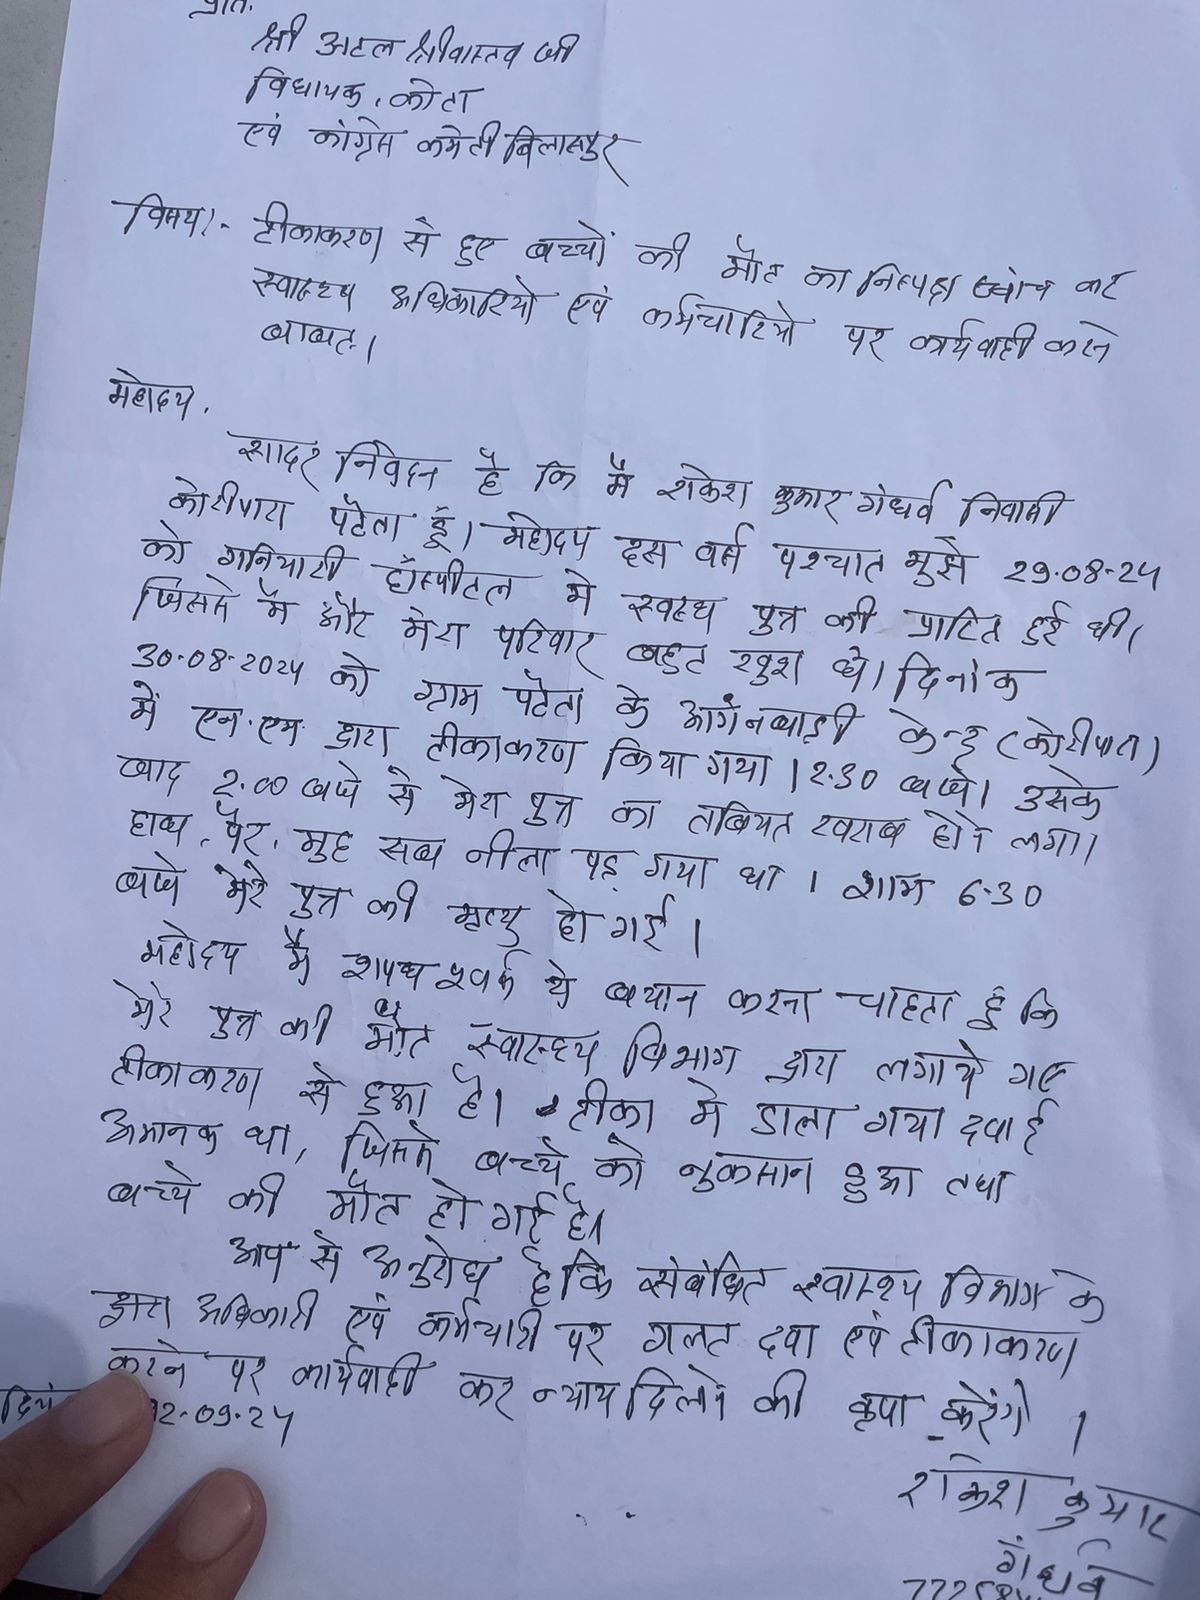 प्रति.
श्री अटल श्रीवास्तव जी
विधायक, कोटा
एवं कांग्रेस कमेटी बिलासपुर
विषय:- टीकाकरण से हुए बच्चों की मौत का निष्पक्ष जांच कर
स्वास्थ्य अधिकारियो एवं कर्मचारियो पर कार्यवाही करने
बाबत।
महोदय,
सादर निवेदन है कि मै राकेश कुमार गंधर्व निवासी
कोरीपारा पटैता हूं। महोदय दस वर्स पश्चात मुझे 29.08.24
को गनियारी हॉस्पीटल मे स्वस्थ पुत्र की प्राप्ति हुई थी।
जिससे मै और मेरा परिवार बहुत खुश थे। दिनांक
30.08.2024 को ग्राम पटैता के आगंनबाड़ी केन्द्र (कोरीपारा)
में एन.एम. द्वारा टीकाकरण किया गया 12.30 बजे। उसके
बाद 2.00 बजे से मेरा पुत्र का तबियत खराब होने लगा।
हाथ, पैर, मुह सब नीला पड़ गया था। शाम 6.30
बजे मेरे पुत्र की मृत्यु हो गई।
महोदय मै शपथ पूवर्क ये बयान करना चाहता हूं कि
मेरे पुत्र की मौत स्वास्थ्य विभाग द्वारा लगाये गए
टीकाकरण से हुआ है। टीका मे डाला गया दवाई
अमानक था, जिससे बच्चे को नुकसान हुआ तथा
बच्चे की मौत हो गई है।
आप से अनुरोध है कि संबंधित स्वास्थ्य विभाग के
द्वारा अधिकारी एवं कर्मचारी पर गलत दवा एवं टीकाकरण
करने पर कार्यवाही कर न्याय दिलाने की कृपा करेंगे।
02.09.24
राकेश कुमार
गंधर्व